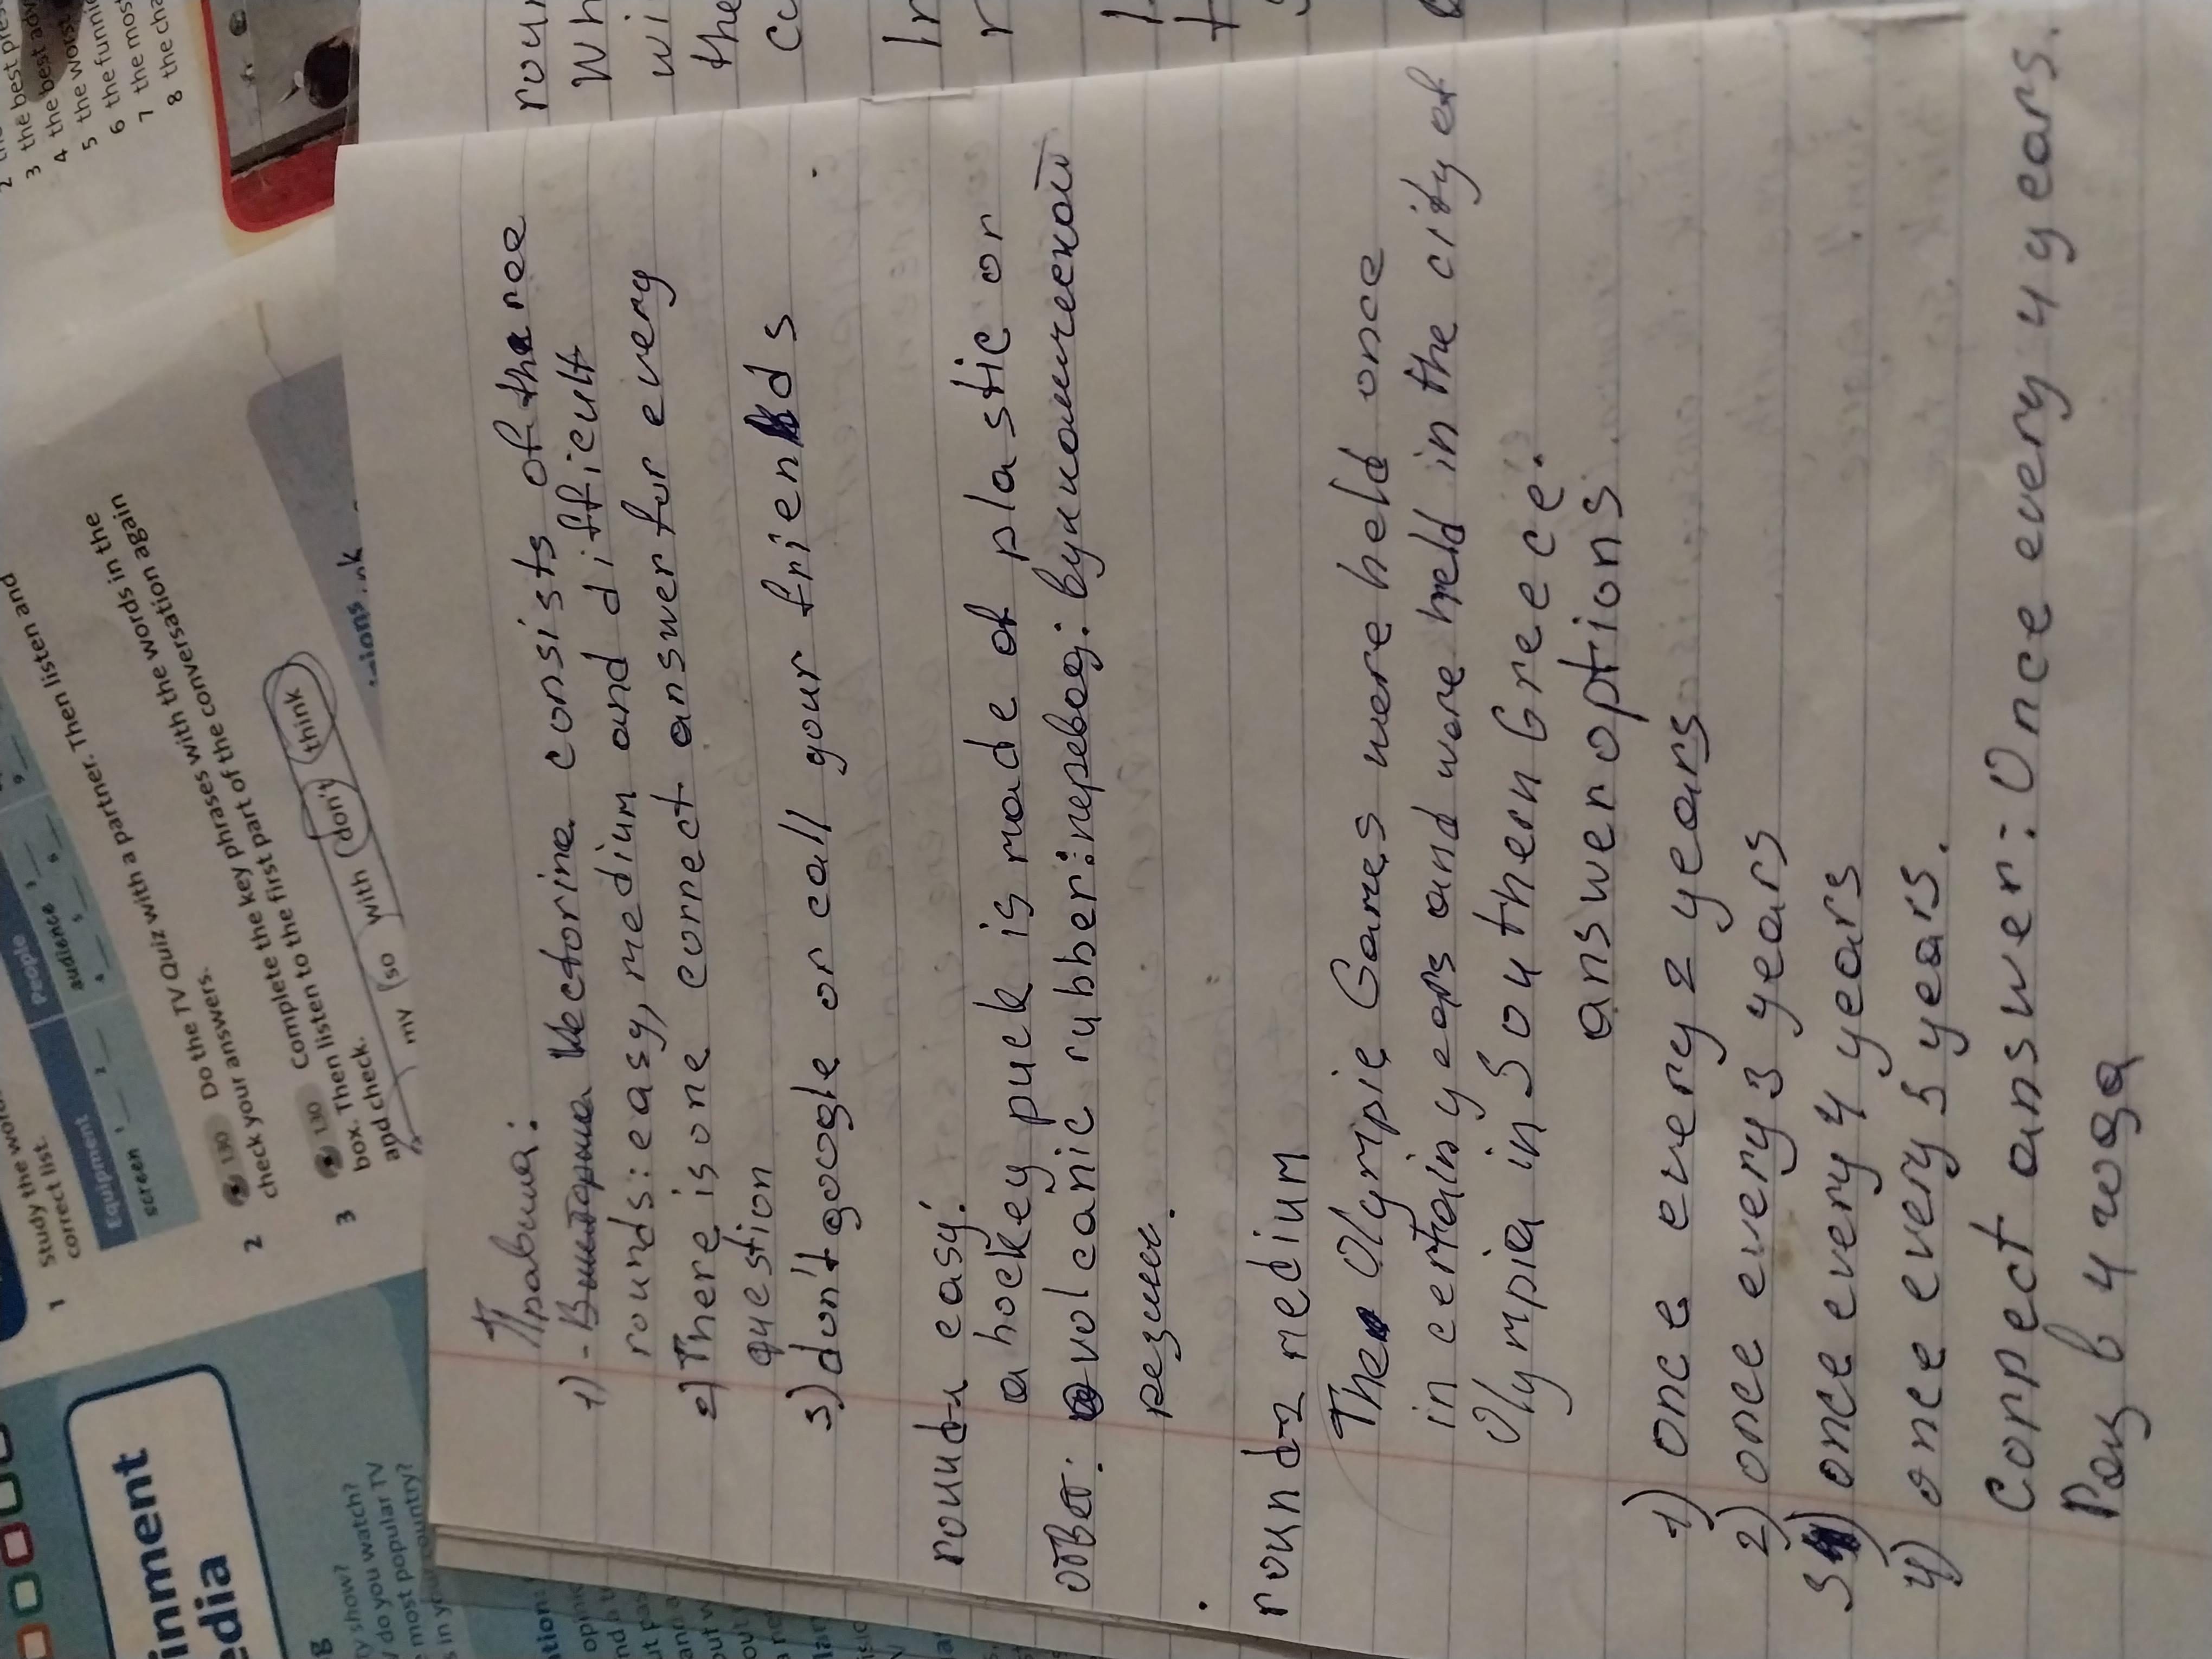 2
3 the best adv
4 the worst
5 the funni
6 the most
7 the most
8 the cha
Study the wor
1
correct list.
Equipment
People
screen 1
2
audience 3
4
5
6
9
partner. Then listen and
2 130 Do the TV Quiz with a partner. Then listen and
check your answers.
3 130 Complete the key phrases with the words in the
box. Then listen to the first part of the conversation again
and check.
my so with don't think
inment
edia
y show?
do you watch?
most popular TV
in your country?
Правила:
1) - Викторина Vectorine consists of tharee
rounds: easy, medium and difficult
2) There is one correct answer for every
question
3) don't google or call your friends
round-1 easy.
a hockey puck is made of plastic or
ответ: volcanic rubber: перевод: вулканической
резины.
round-2 medium
The Olympic Games were held once
in certain years and were held in the city of
Olympia in Southern Greece.
answer options
1) once every 2 years
2) once every 3 years
3) once every 4 years
4) once every 5 years.
Correct answer: Once every 4 years.
Раз в 4 года